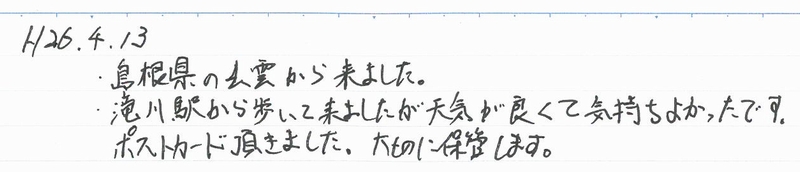 H26.4.13
・島根県の出雲から来ました。
・滝川駅から歩いて来ましたが天気が良くて気持ちよかったです。
ポストカード頂きました、大切に保管します。